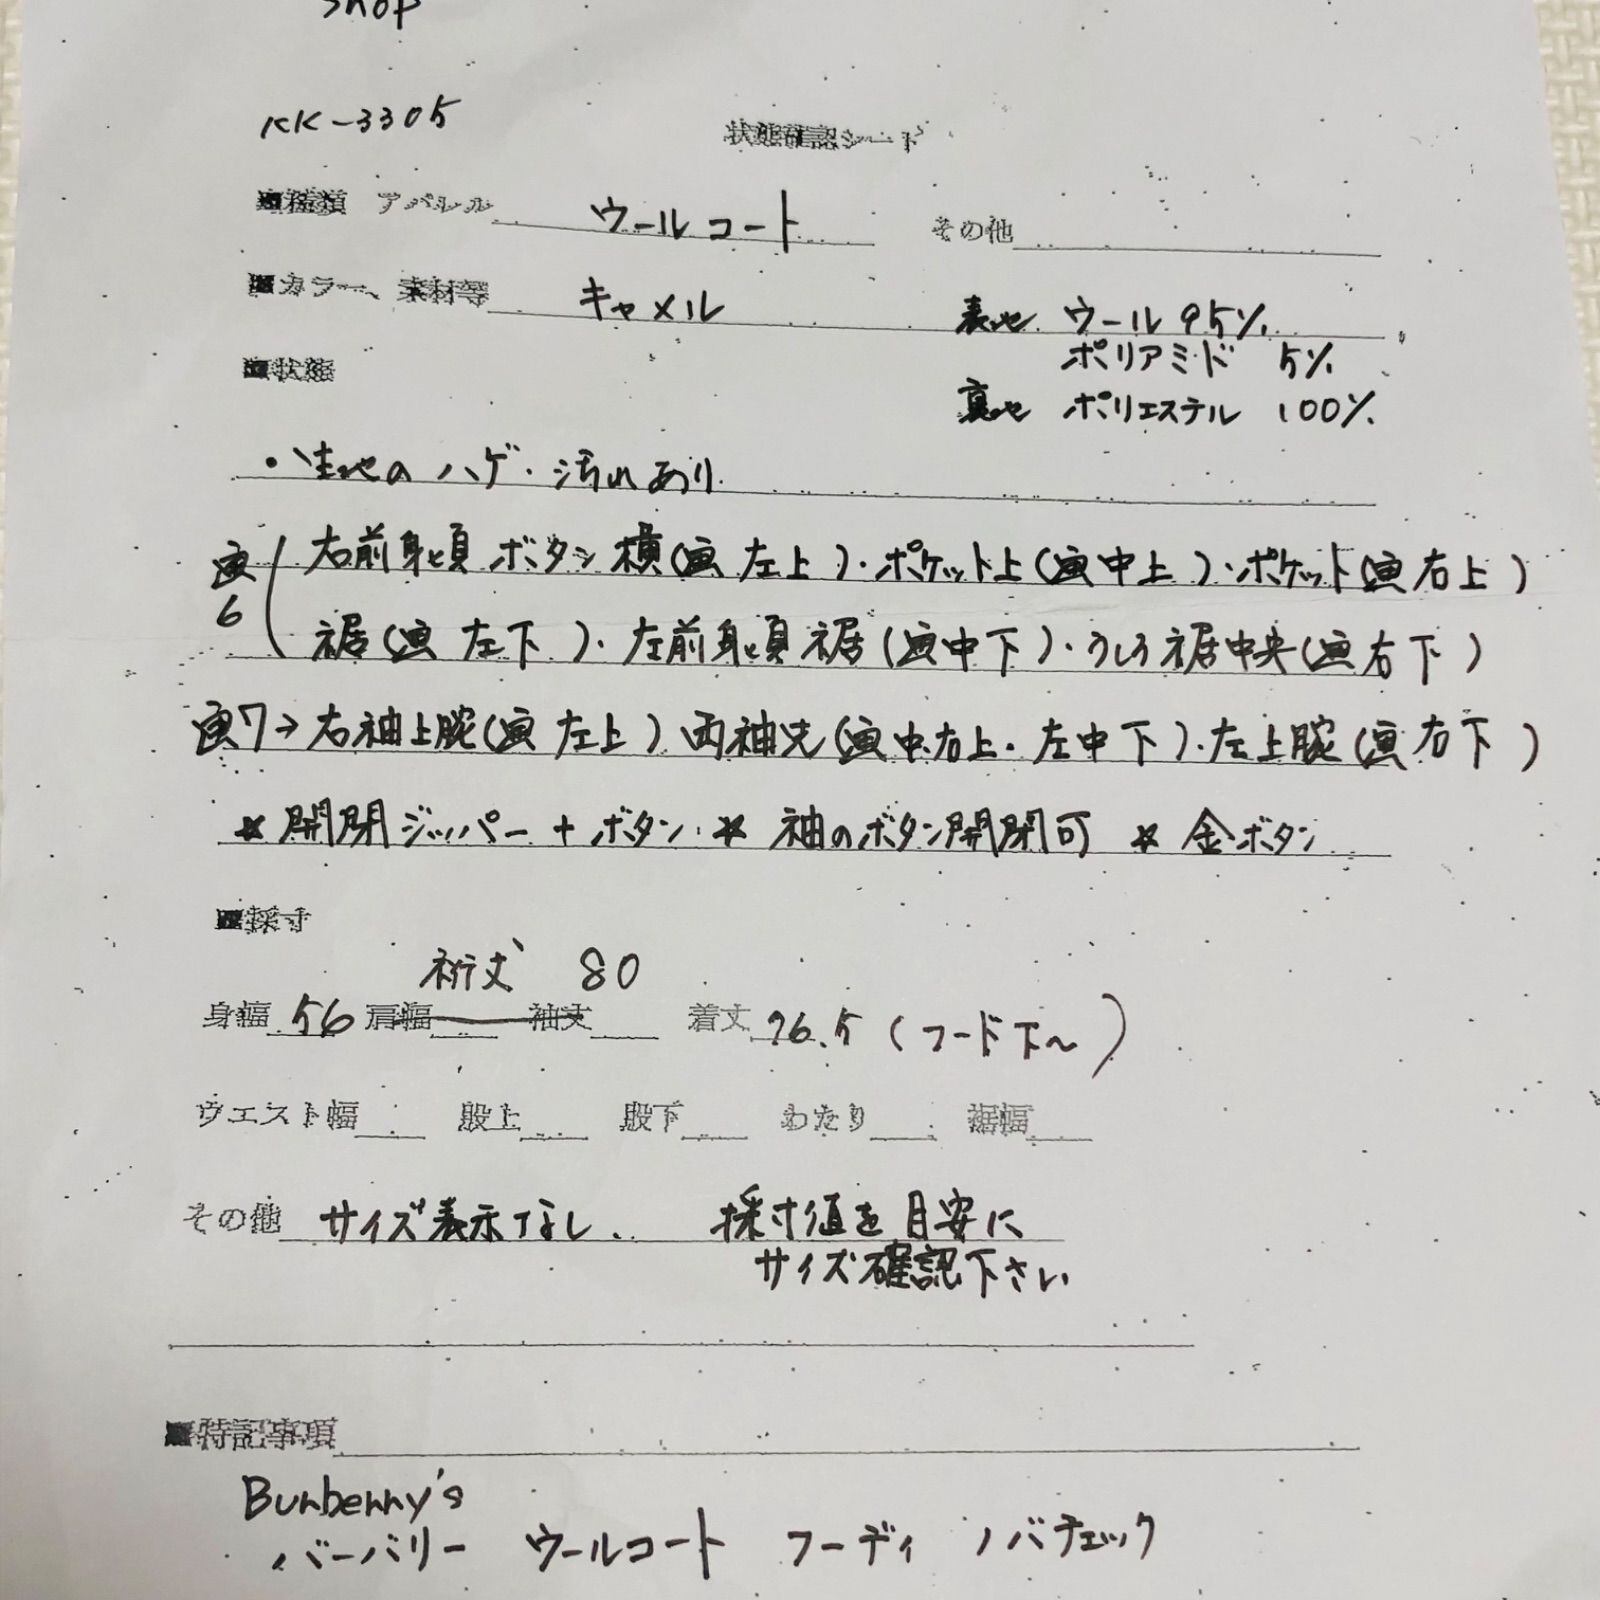 shop
KK-3305
状態確認シート
■種類 アパレル ウールコート その他
■カラー、素材等 キャメル 表地 ウール 95%
ポリアミド 5%
■状態
裏地 ポリエステル 100%
・生地のハゲ・汚れあり
画6 右前身頃 ボタン横(画左上)・ポケット上(画中上)・ポケット(画右上)
裾(画左下)・左前身頃裾(画中下)・うしろ裾中央(画右下)
画7→右袖上腕(画左上)両袖先(画中右上・左中下)・左上腕(画右下)
*開閉ジッパー+ボタン *袖のボタン開閉可 *金ボタン
■採寸
裄丈 80
身幅 56 肩幅 袖丈 着丈 76.5(フード下〜)
ウエスト幅 股上 股下 わたり 裾幅
その他 サイズ表示なし. 採寸値を目安に
サイズ確認下さい
■特記事項
Burberry's
バーバリー ウールコート フーディ ノバチェック